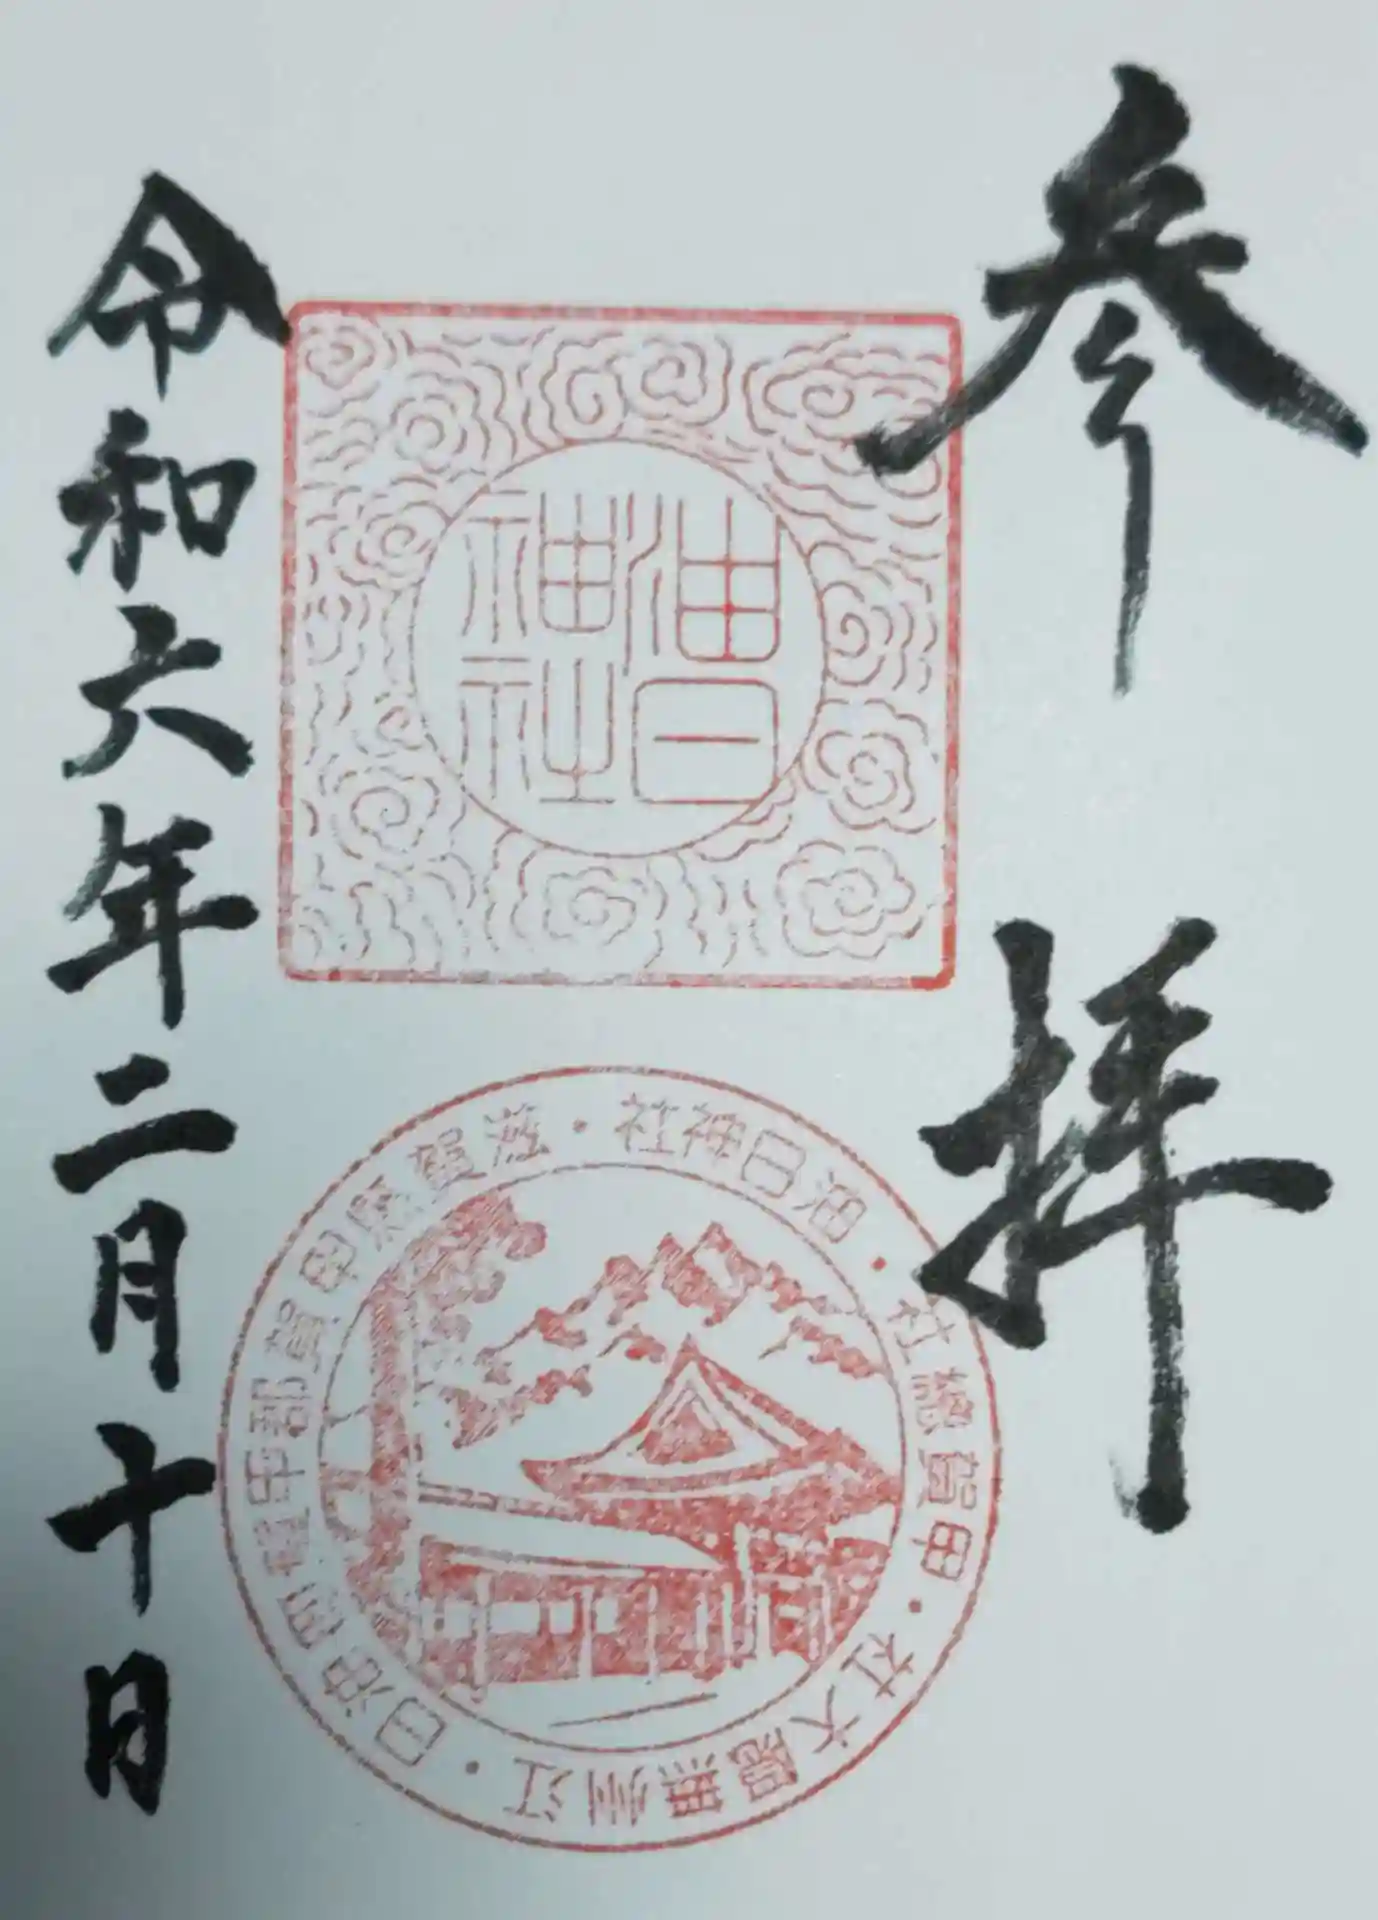 参拝
油日
神社
油日神社・滋賀県甲賀郡甲賀町油日・江州無隠大社・甲賀總社・
令和六年二月十日